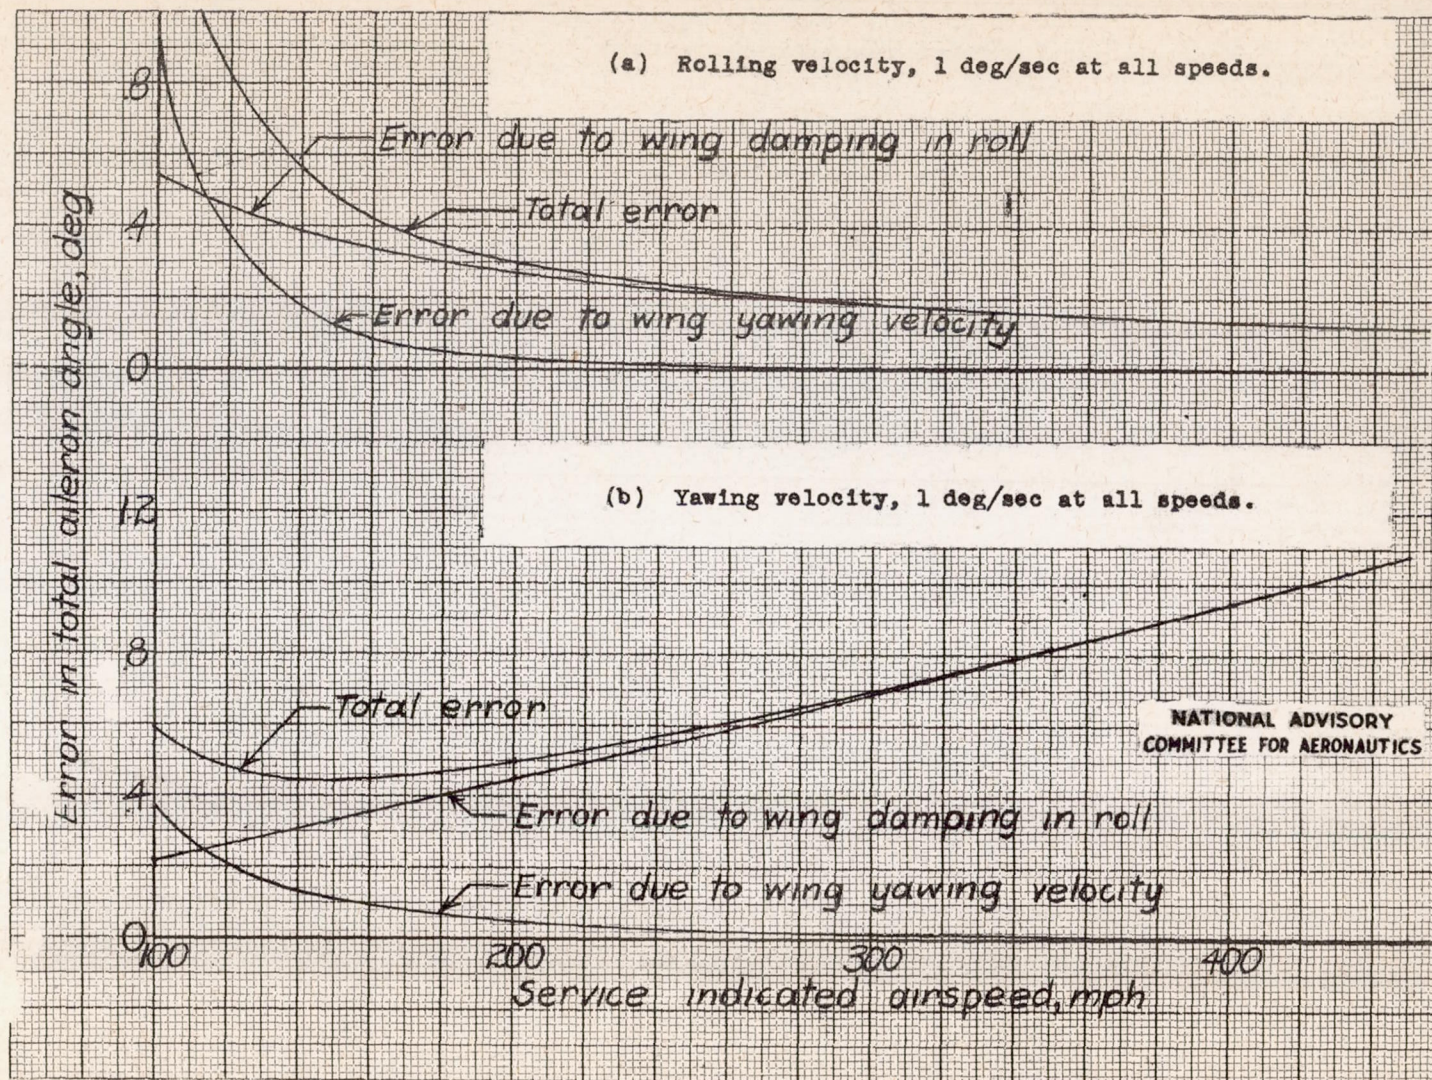 (a) Rolling velocity, 1 deg/sec at all speeds.
.8
Error due to wing damping in roll
Total error
.4
Error due to wing yawing velocity
0
Error in total aileron angle, deg
(b) Yawing velocity, 1 deg/sec at all speeds.
1.2
.8
Total error
NATIONAL ADVISORY
COMMITTEE FOR AERONAUTICS
.4
Error due to wing damping in roll
Error due to wing yawing velocity
0
100 200 300 400
Service indicated airspeed, mph